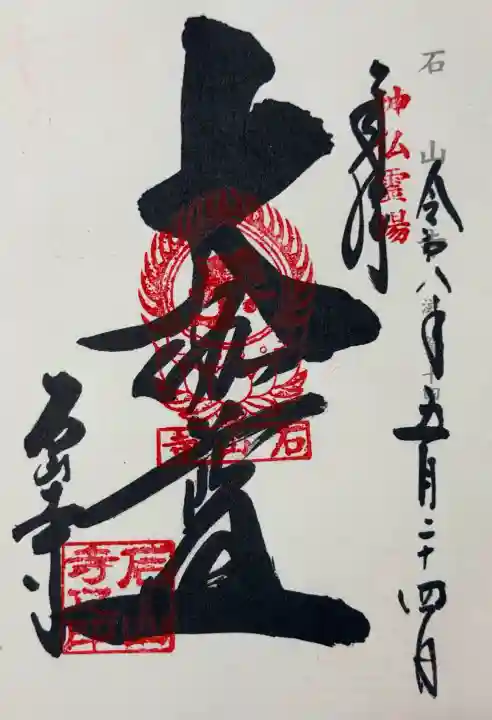 石山
令和八年五月二十四日
奉拝
神仏霊場
大伽藍
石山寺
石山寺